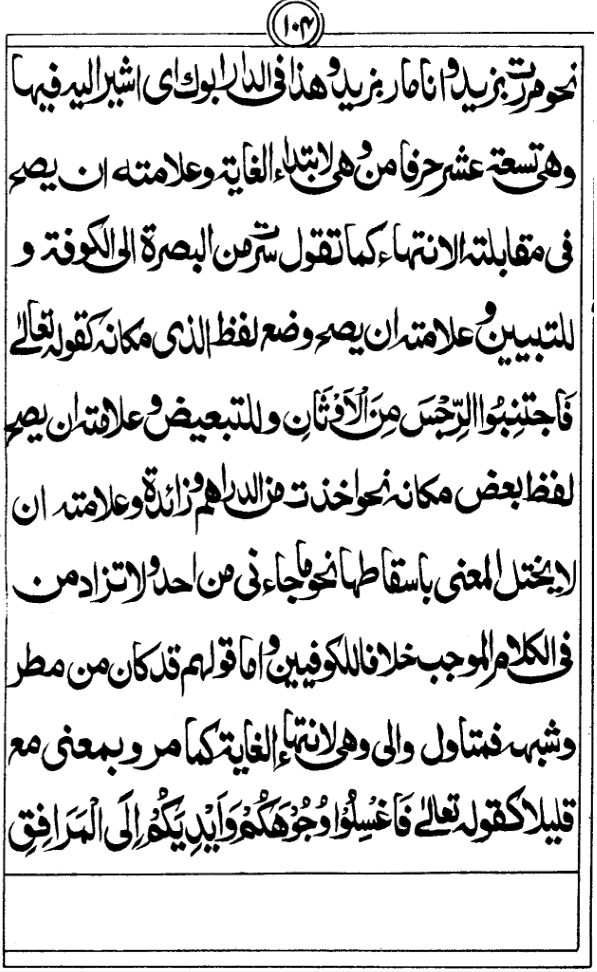 ١٠٤
نحو مررت بزيد وانا مار بزيد وهذا فى الدار ابوك اى اشير اليه فيها
وهى تسعة عشر حرفا من وهى لابتداء الغاية وعلامته ان يصح
فى مقابلته الانتهاء كما تقول سرت من البصرة الى الكوفة و
للتبيين وعلامته ان يصح وضع لفظ الذى مكانه كقوله تعالىٰ
فَاجْتَنِبُوا الرِّجْسَ مِنَ الْاَوْثَانِ وللتبعيض وعلامته ان يصح
لفظ بعض مكانه نحو اخذت من الدراهم وزائدة وعلامته ان
لا يختل المعنى باسقاطها نحو ما جاءنى من احد ولا تزاد من
فى الكلام الموجب خلافا للكوفيين واما قولهم قد كان من مطر
وشبهه فمتاول والى وهى لانتهاء الغاية كما مر وبمعنى مع
قليلا كقوله تعالىٰ فَاغْسِلُوْا وُجُوْهَكُمْ وَاَيْدِيَكُمْ اِلَى الْمَرَافِقِ